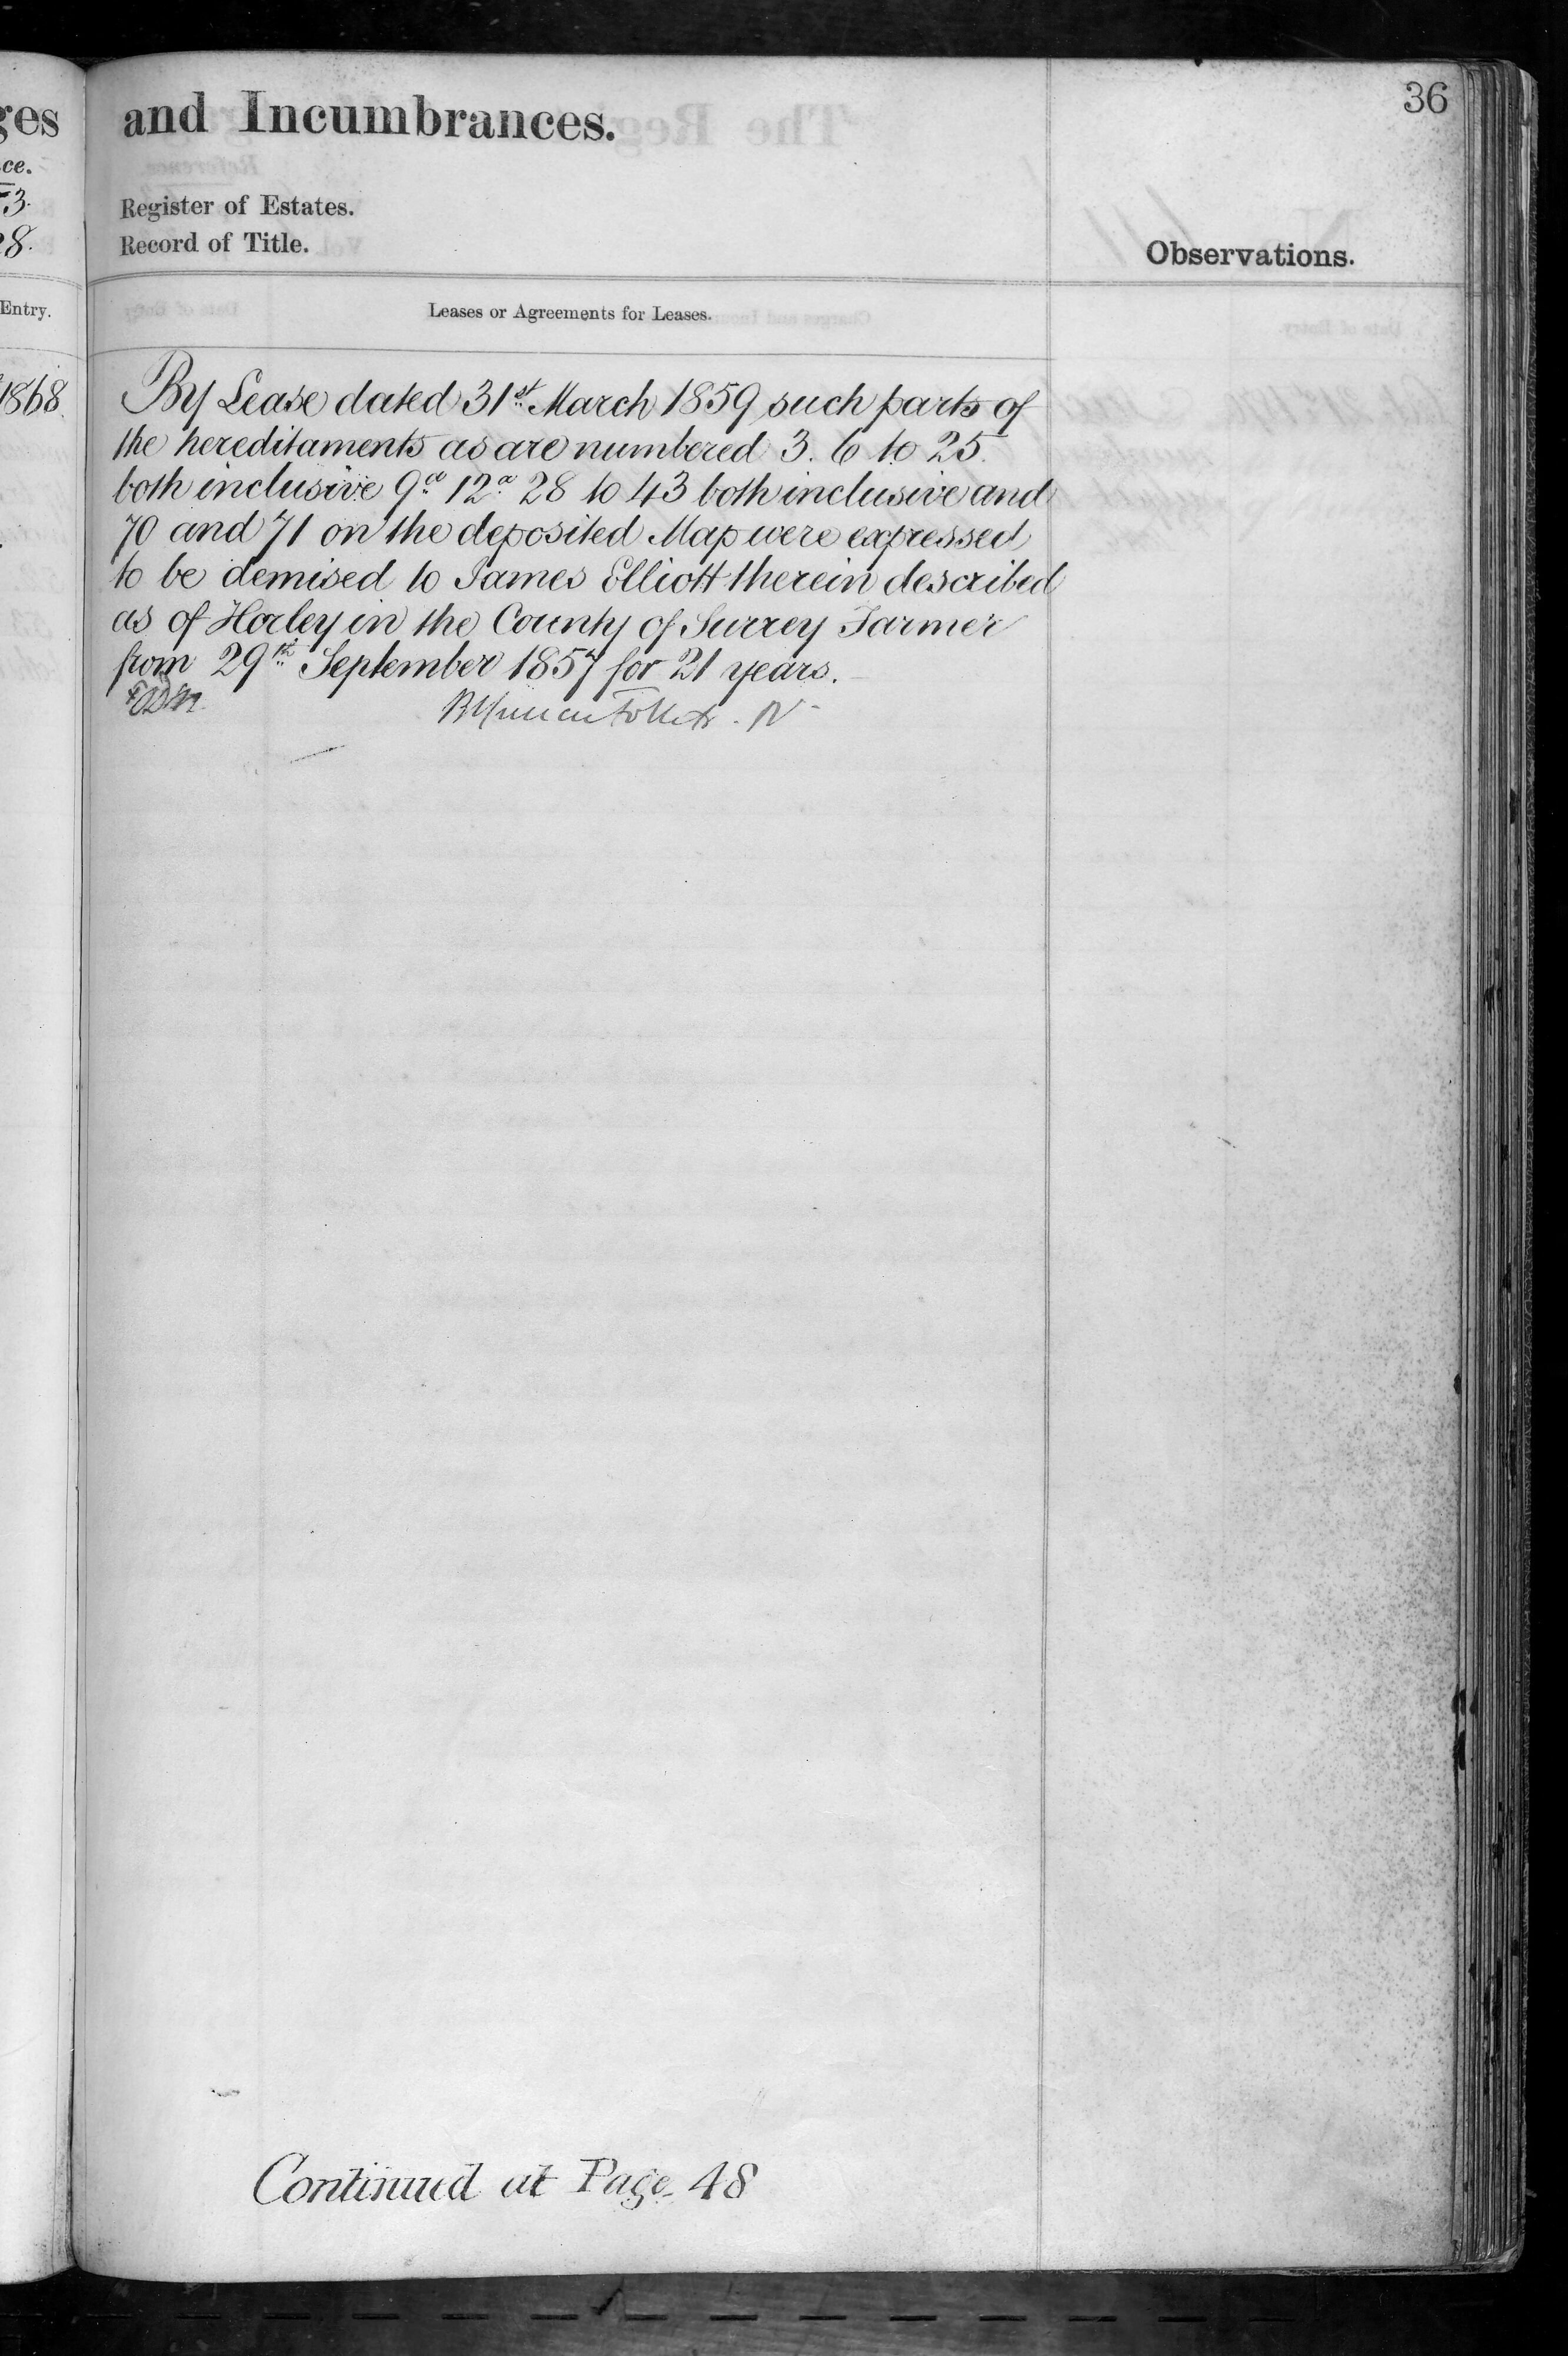 36
and Incumbrances.
Register of Estates.
Record of Title.
Observations.
Leases or Agreements for Leases.
By Lease dated 31st March 1859 such parts of
the hereditaments as are numbered 3. 6 to 25
both inclusive 9a 12a 28 to 43 both inclusive and
70 and 71 on the deposited Map were expressed
to be demised to James Elliott therein described
as of Horley in the County of Surrey Farmer
from 29th September 1857 for 21 years.
Continued at Page 48
ges
ce.
3.
8.
Entry.
1868